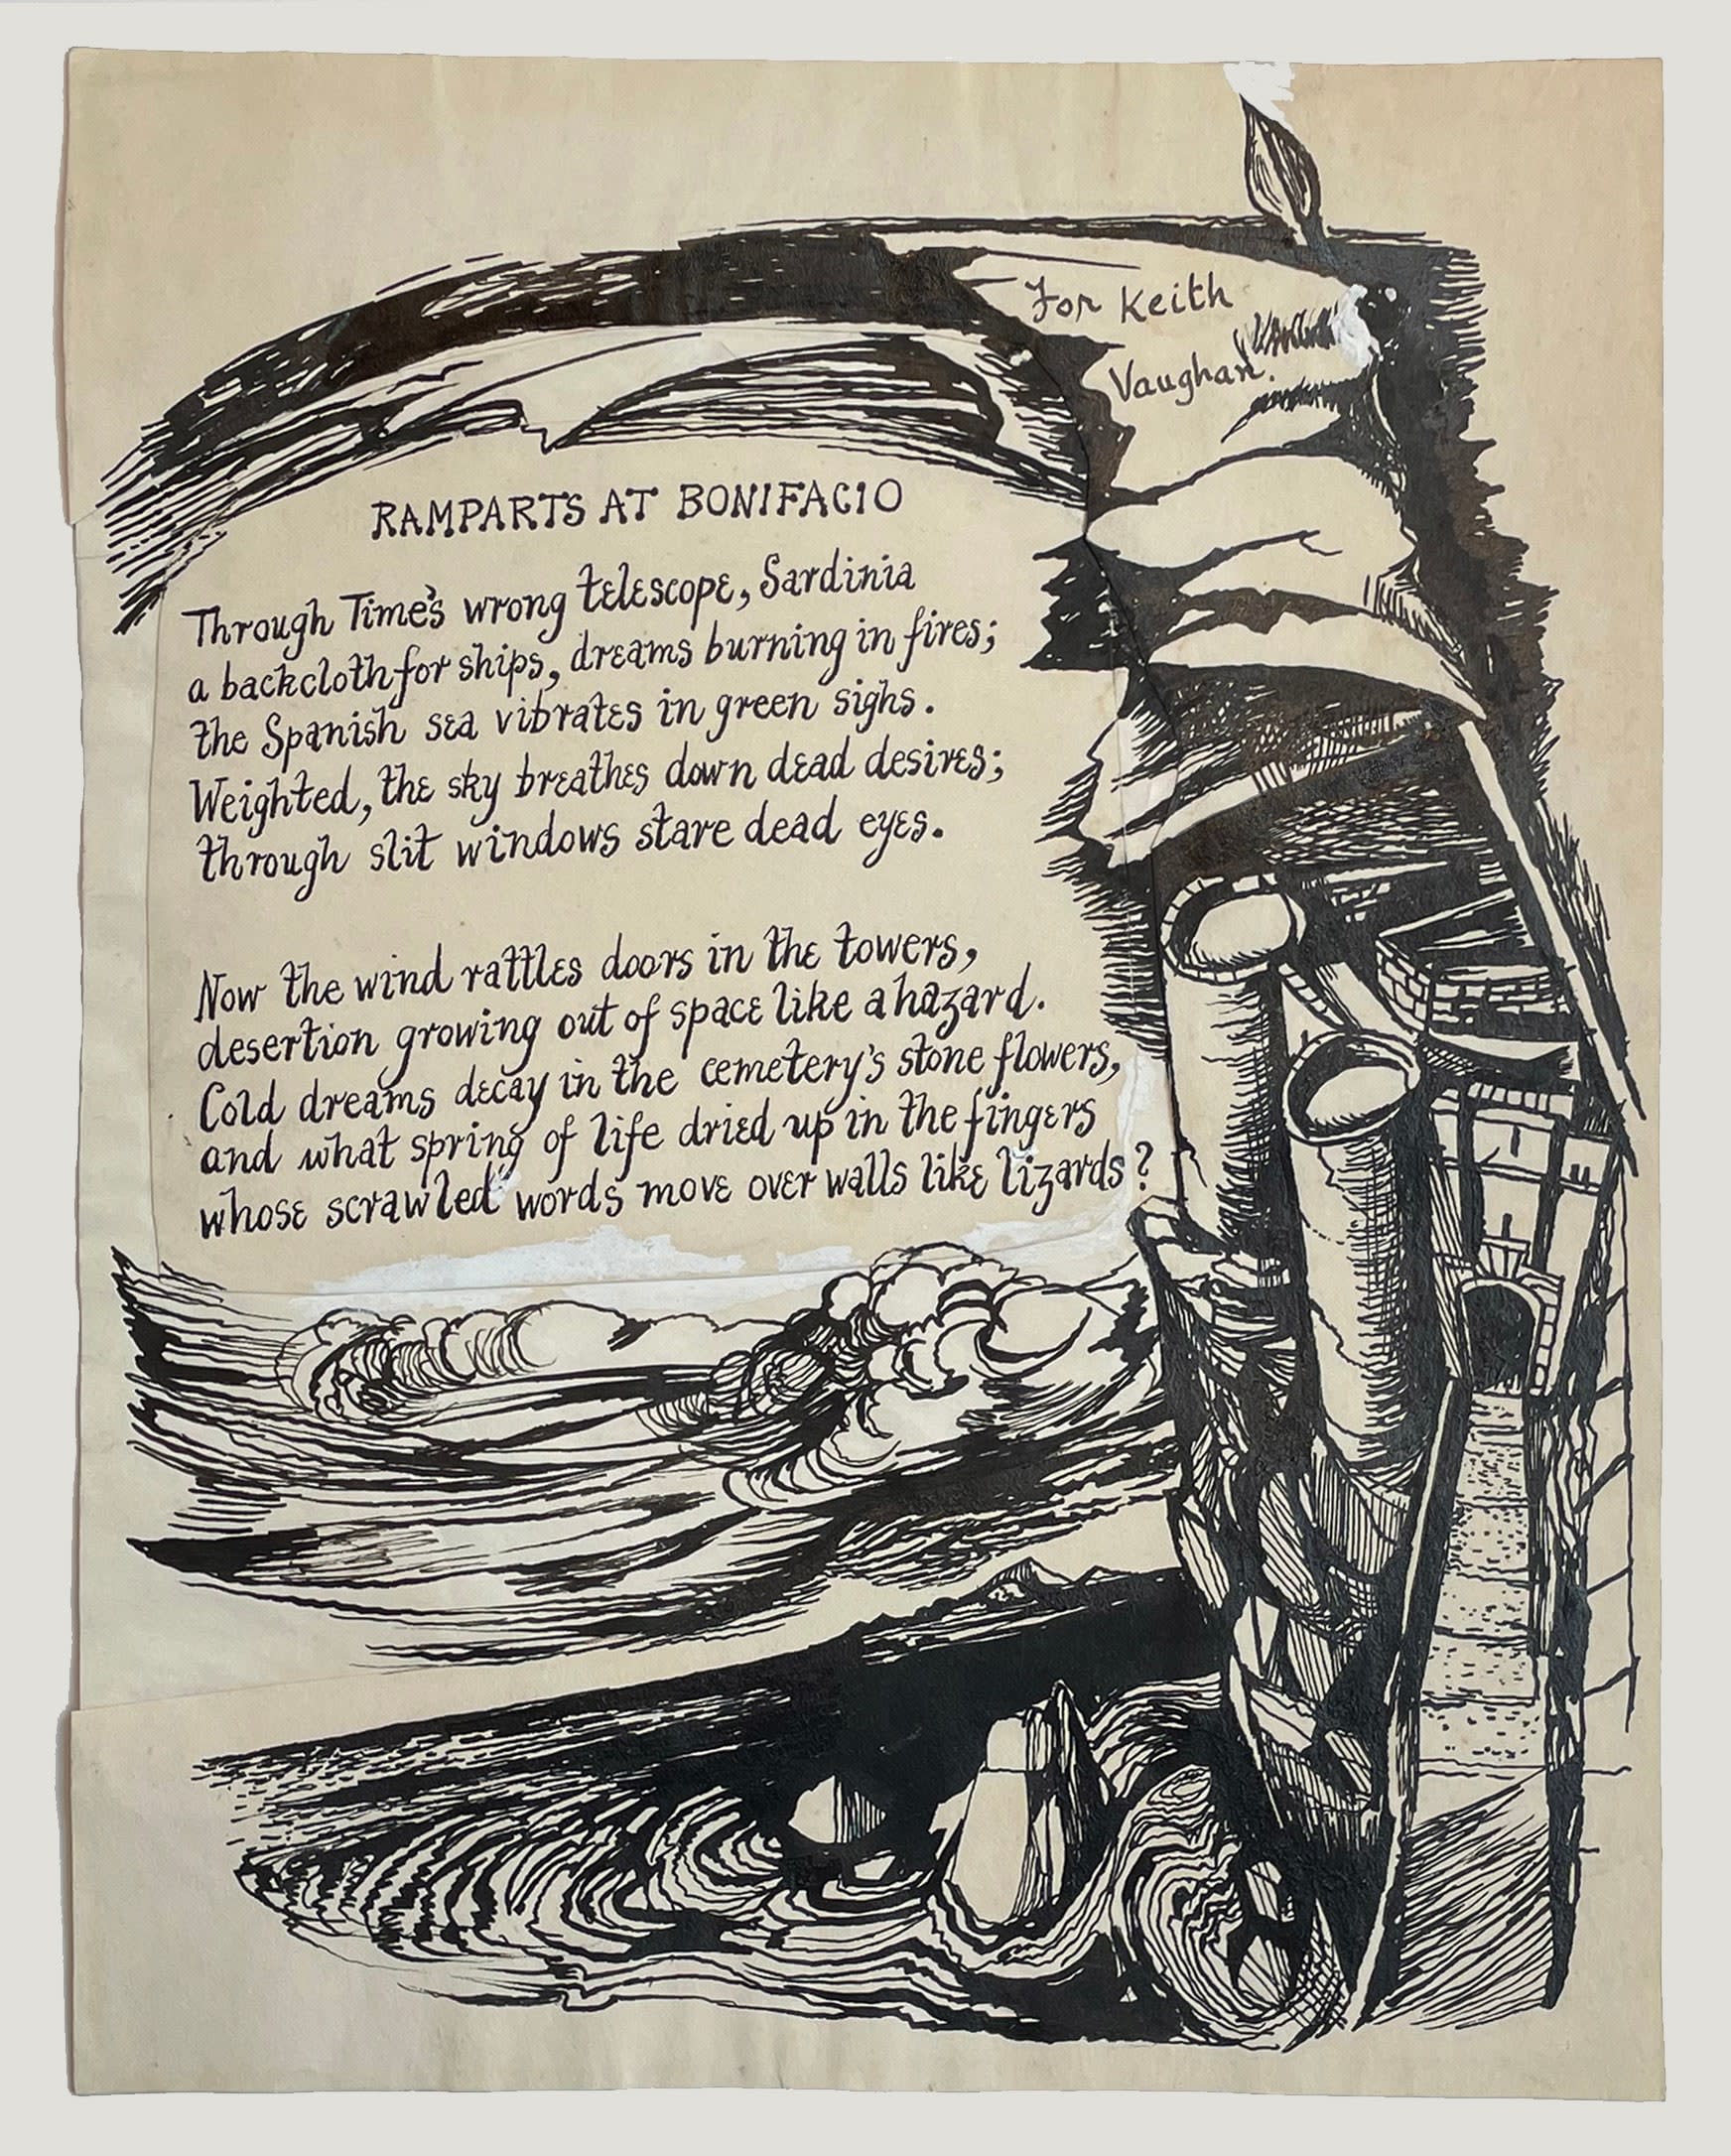 For Keith
Vaughan.
RAMPARTS AT BONIFACIO
Through Time's wrong telescope, Sardinia
a backcloth for ships, dreams burning in fires;
the Spanish sea vibrates in green sighs.
Weighted, the sky breathes down dead desires;
through slit windows stare dead eyes.
Now the wind rattles doors in the towers,
desertion growing out of space like a hazard.
Cold dreams decay in the cemetery's stone flowers,
and what spring of life dried up in the fingers
whose scrawled words move over walls like lizards?